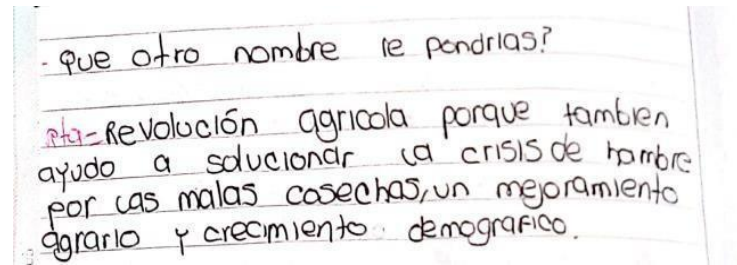 - que otro nombre le pondrias?
rta- Revolución agricola porque tambien
ayudo a solucionar la crisis de hambre
por las malas cosechas, un mejoramiento
agrario y crecimiento demografico.